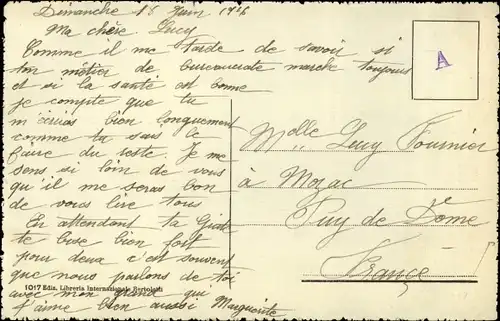 Dimanche 15 Juin 1926
Ma chère Lucy
Comme il me tarde de savoir si
ton métier de bureaucrate marche toujours
et si la santé est bonne
je compte que tu
m'écriras bien longuement
comme tu sais le
faire du reste. Je me
sens si loin de vous
qu'il me seras bon
de vous lire tous
En attendant ta
te bise bien fort
pour deux c'est souvent
que nous parlons de toi
avec mon grand qui
t'aime bien aussi Marguerite
1017 Edis. Libreria Internazionale Bertolotti
A
Melle Lucy Fournier
à Mozac
Puy de Dôme
France